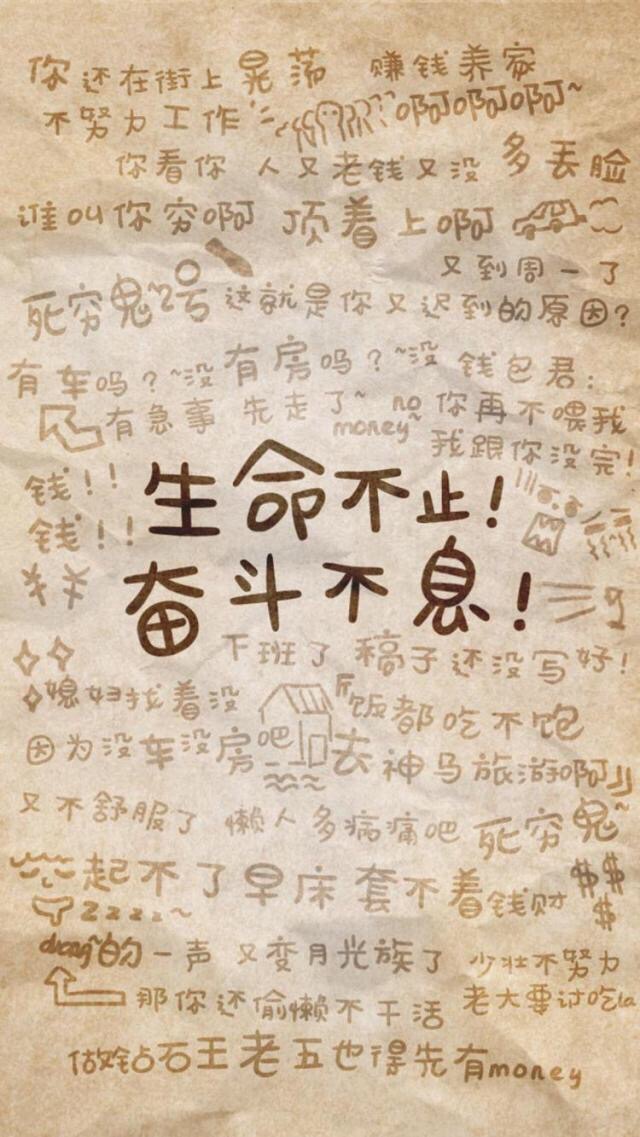 你还在街上晃荡 赚钱养家
不努力工作 啊啊啊~
你看你 人又老钱又没 多丢脸
谁叫你穷啊 顶着上啊
又到周一了
死穷鬼~2号 这就是你又迟到的原因?
有车吗?~没有房吗?~没 钱包君:
有急事 先走了~ no money 你再不喂我
我跟你没完!
钱!!
钱!!
¥¥
生命不止!
奋斗不息!
下班了 稿子还没写好!
媳妇找着没 斤饭都吃不饱
因为没车没房吧 去神马旅游啊
又不舒服了 懒人多病痛吧 死穷鬼~
起不了早床 套不着钱财 $$$$
zzzz~
duang~的一声 又变月光族了 少壮不努力
那你还偷懒不干活 老大要讨吃la
做姩占石王老五也得先有money